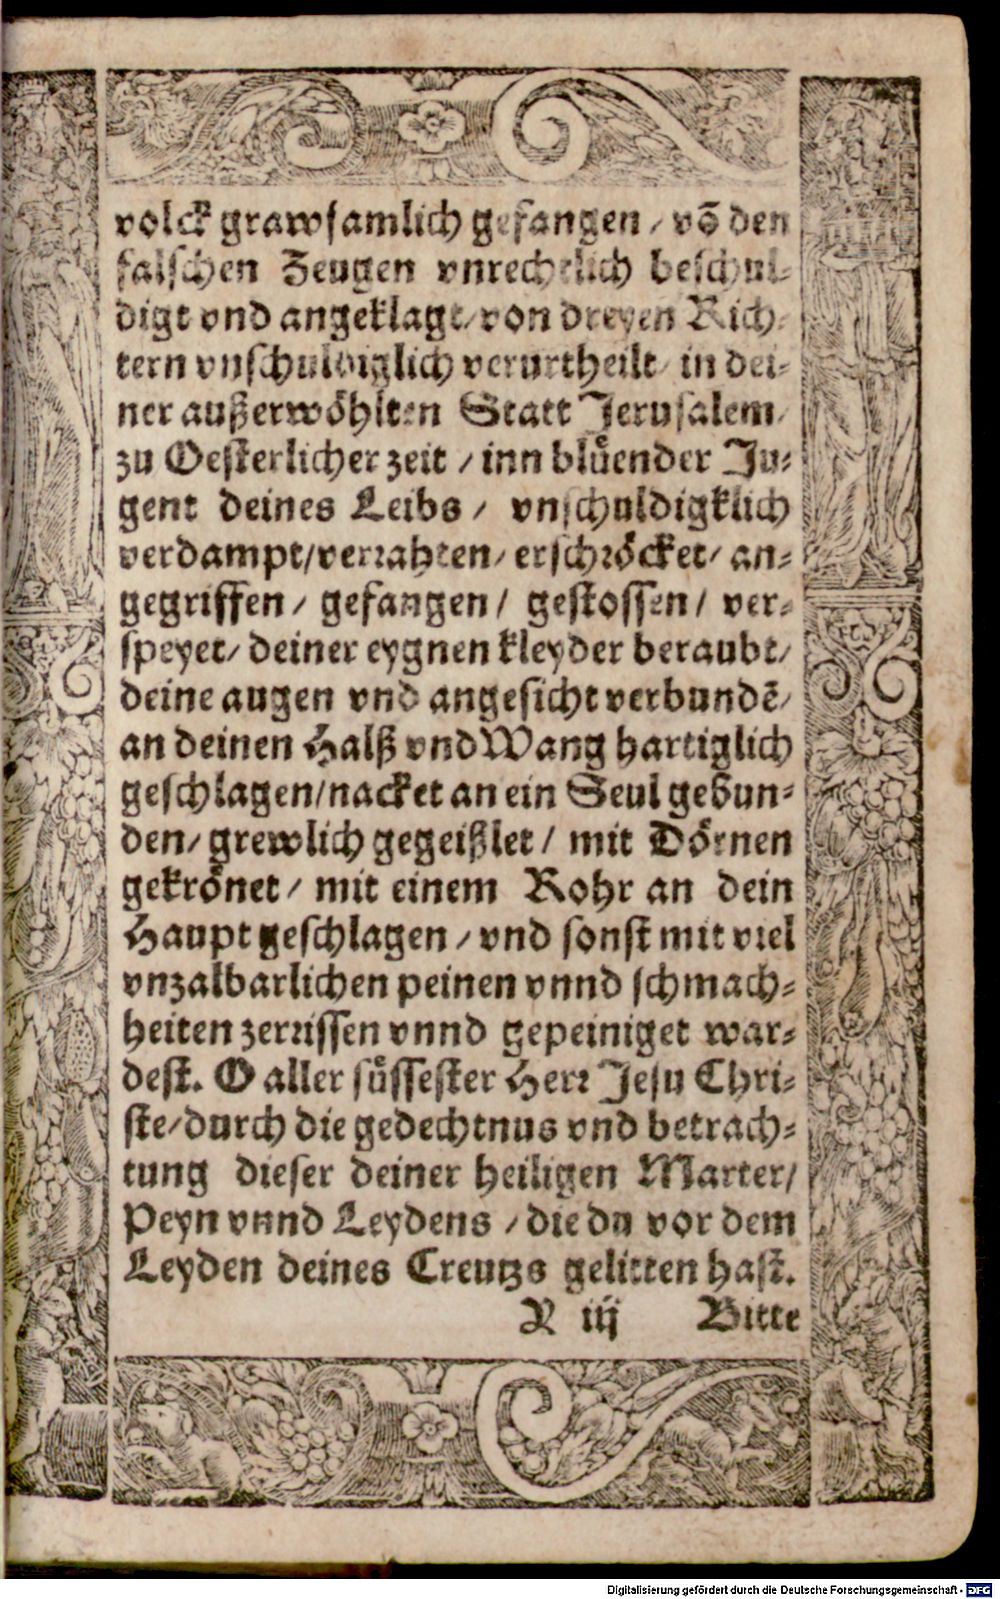 volck grawsamlich gefangen / vō den
falschen Zeugen vnrechtlich beschul-
digt vnd angeklagt / von dreyen Rich-
tern vnschuldiglich verurtheilt / in dei-
ner außerwöhlten Statt Jerusalem /
zu Oesterlicher zeit / inn blůender Ju-
gent deines Leibs / vnschuldigklich
verdampt / verrahten / erschröcket / an-
gegriffen / gefangen / gestossen / ver-
speyet / deiner eygnen kleyder beraubt /
deine augen vnd angesicht verbundē /
an deinen Halß vnd Wang hartiglich
geschlagen / nacket an ein Seul gebun-
den / grewlich gegeißlet / mit Dörnen
gekrönet / mit einem Rohr an dein
Haupt geschlagen / vnd sonst mit viel
vnzalbarlichen peinen vnnd schmach-
heiten zerrissen vnnd gepeiniget war-
dest. O aller süssester Herr Jesu Chri-
ste / durch die gedechtnus vnd betrach-
tung dieser deiner heiligen Marter /
Peyn vnnd Leydens / die du vor dem
Leyden deines Creutzs gelitten hast.
R iij Bitte
Digitalisierung gefördert durch die Deutsche Forschungsgemeinschaft - DFG